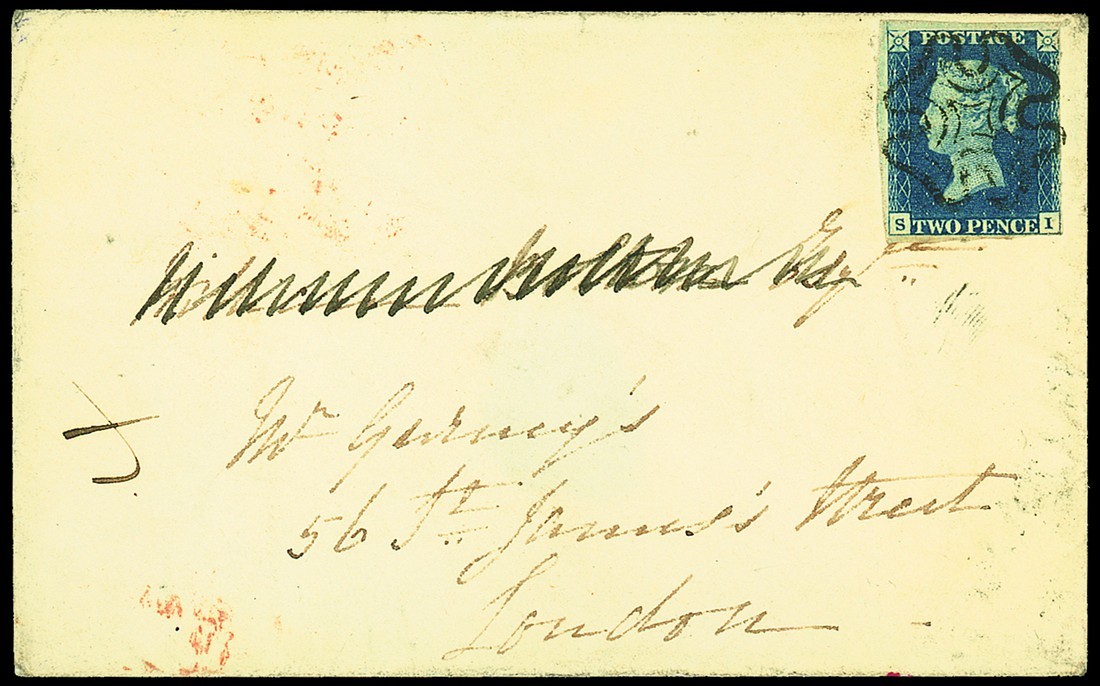 POSTAGE
S TWO PENCE I
Esqre
Mr Gurney's
56 St. James's Street
London